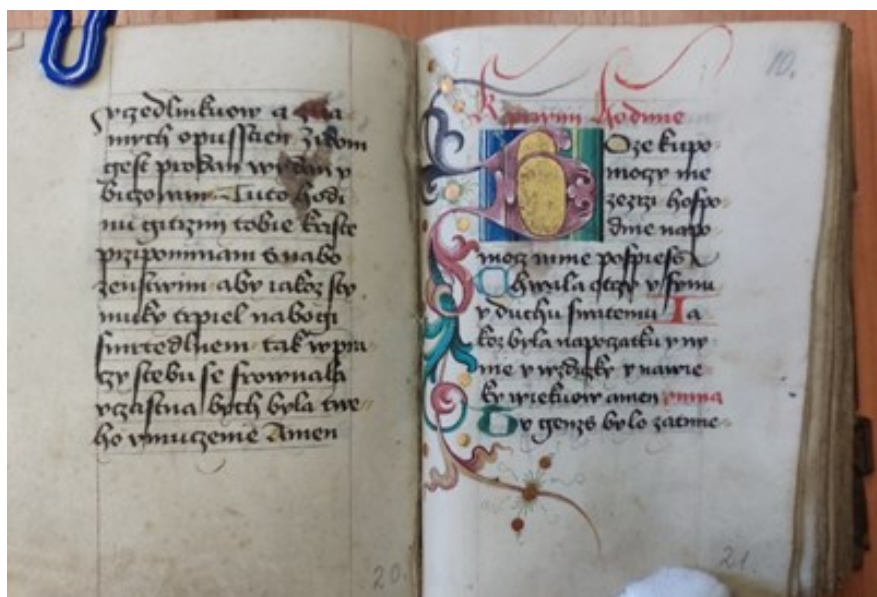 vczedlnikuow a zna
mych opusstien Zidom
gest prodan wydan y
biczowan Tuto hodi
nu gitrzni tobie kriste
przipominam s nabo
zenstwim aby iakoz sty
muky trpiel na bogi
smrtedlnem tak w pra
czy stebu se srownala
vczastna bych byla twe
ho vmuczenie Amen
20.
10.
K prwni hodine
Oze ku po
moczy me
zezrzi hospo
dine na po
mocz mne pospiess
Chwala otczy y synu
y duchu swatemu Ia
koz byla napoczatku y ny
nie y wzdyczky y na wie
ky wiekuow amen
Ty genzs bylo zatme
21.